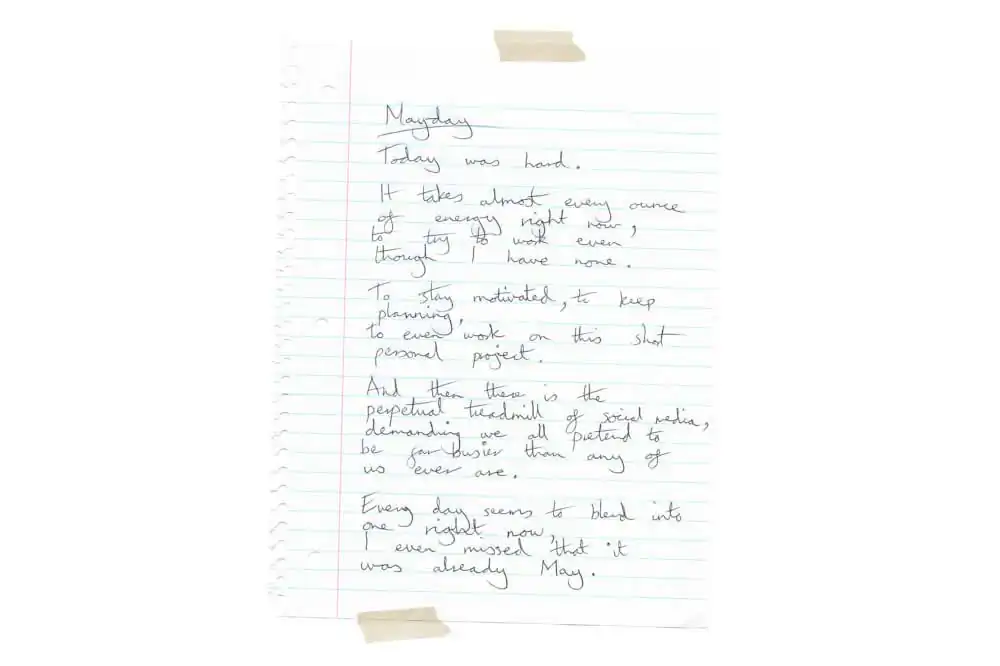 Mayday
Today was hard.
It takes almost every ounce
of energy right now,
to try to work even
though I have none.
To stay motivated, to keep
planning,
to even work on this shot
personal project.
And then there is the
perpetual treadmill of social media,
demanding we all pretend to
be far busier than any of
us ever are.
Every day seems to blend into
one right now,
I even missed that it
was already May.